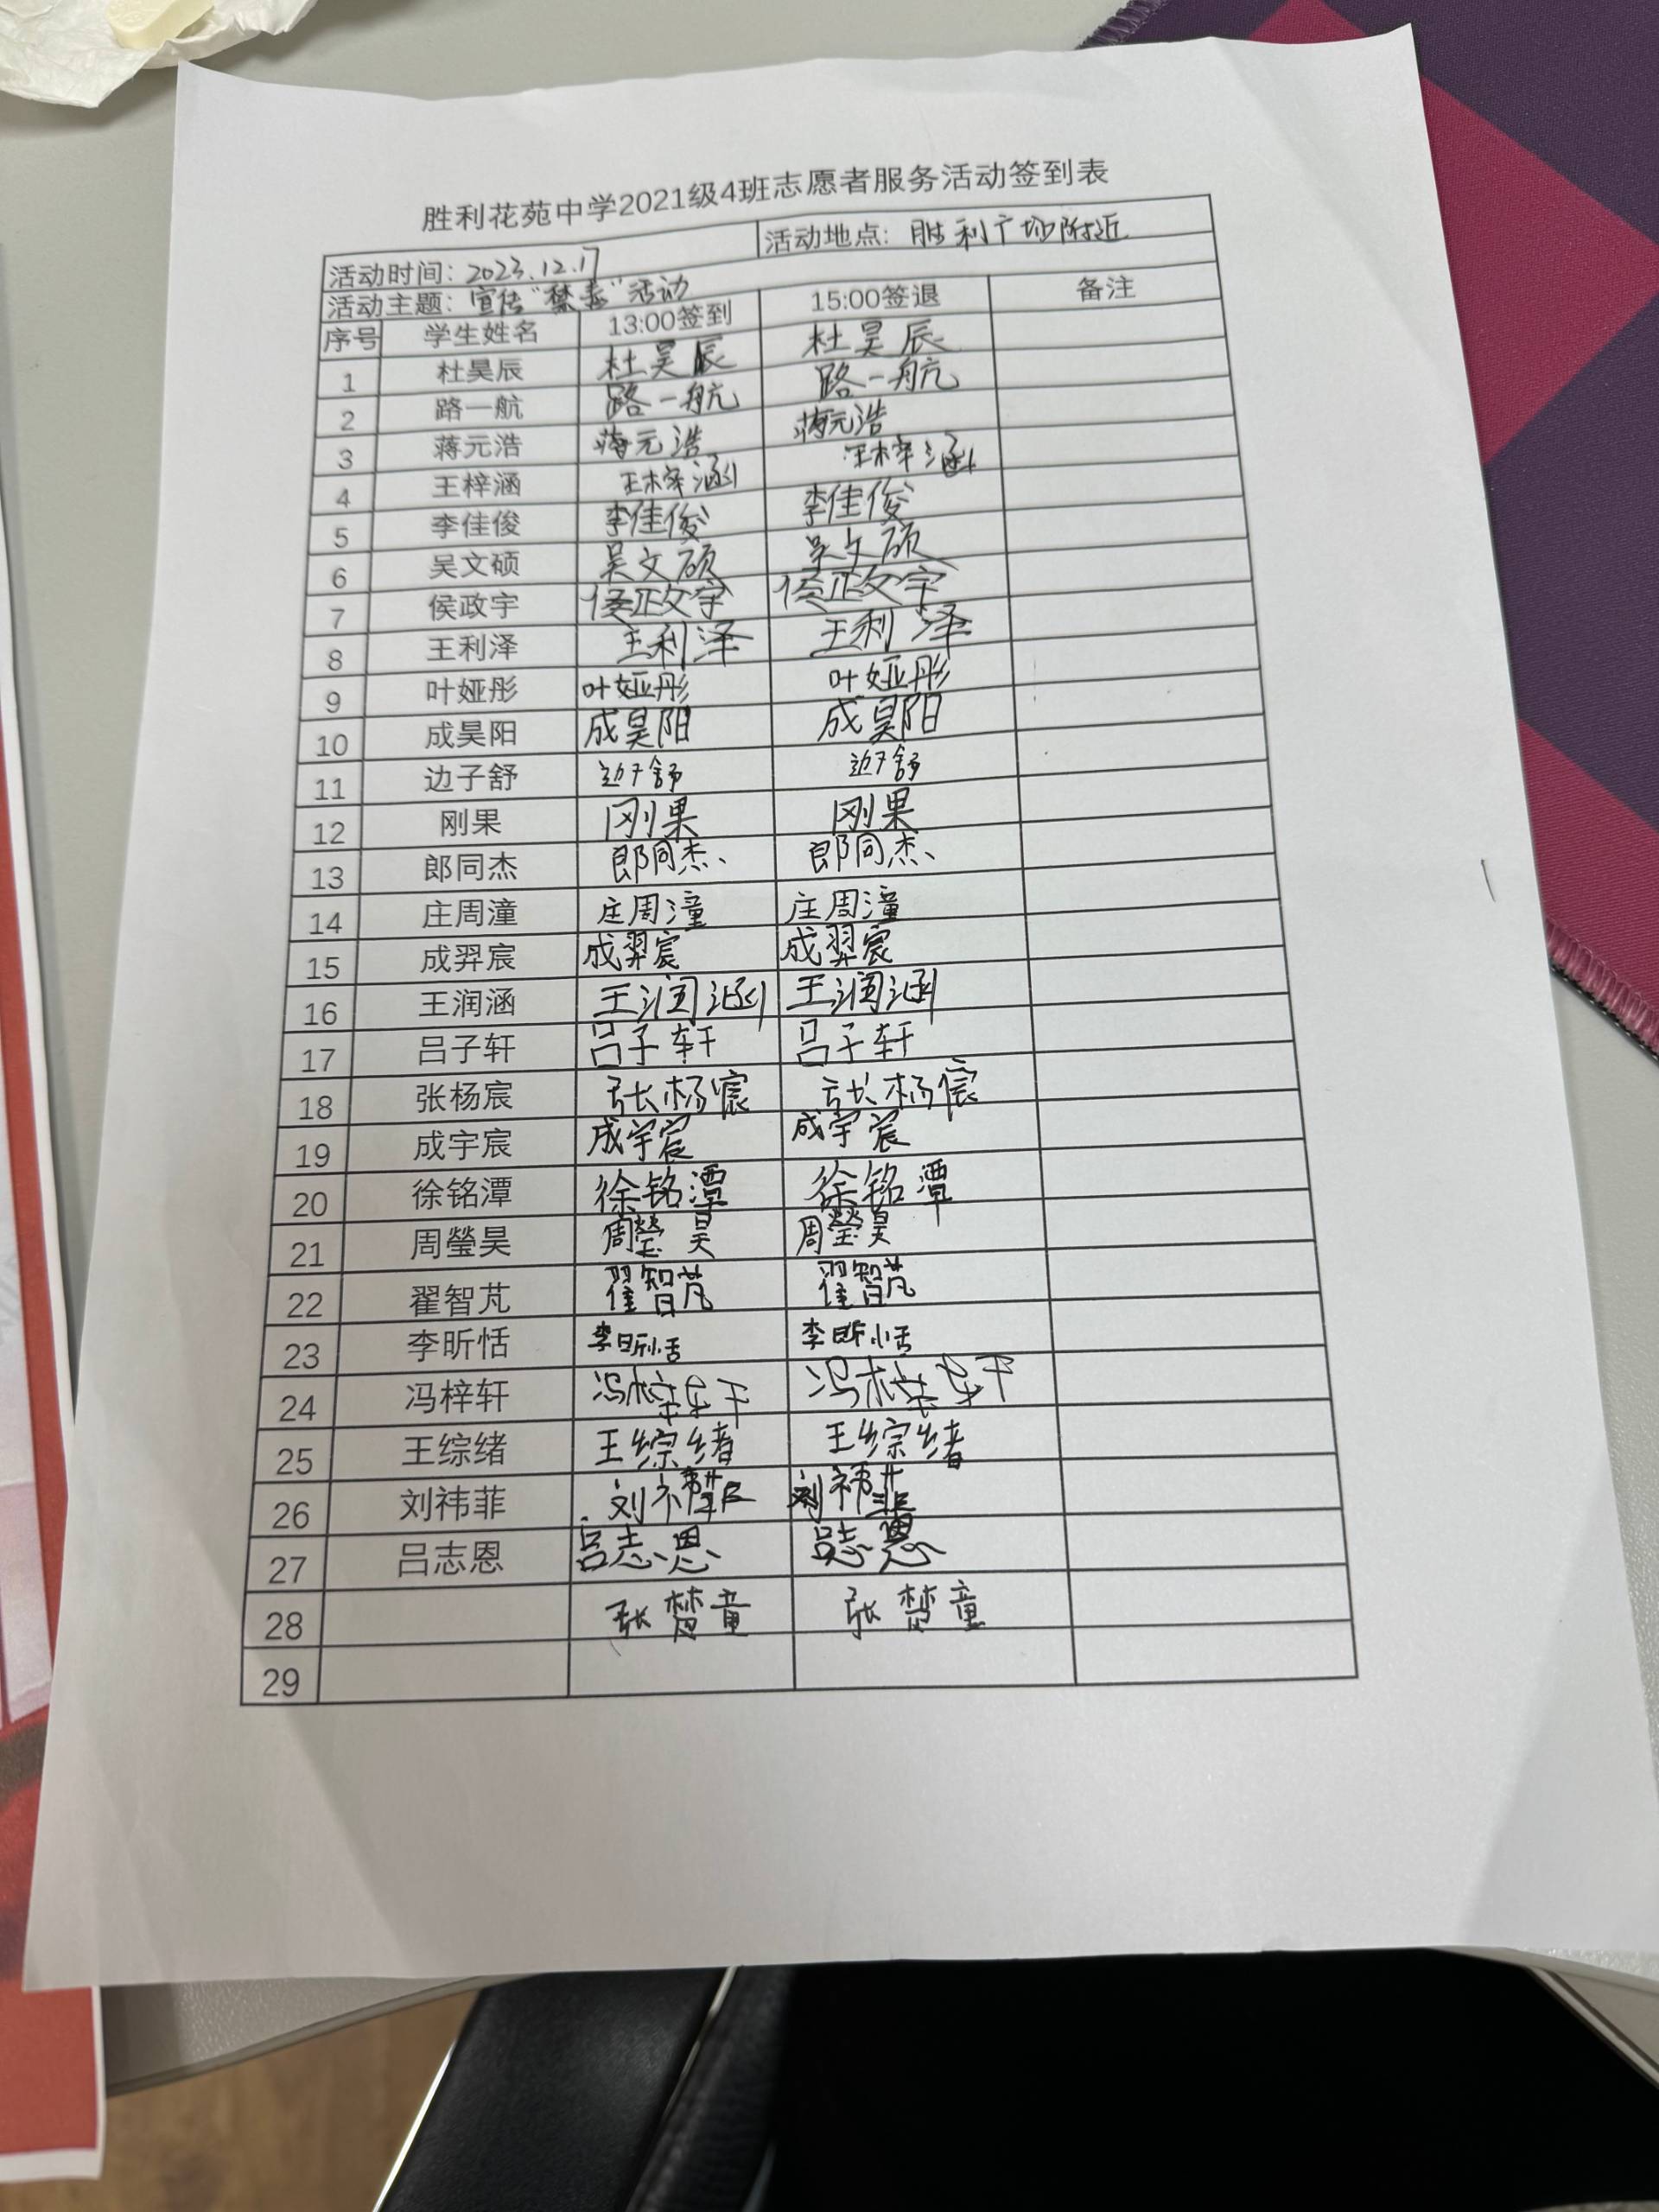 胜利花苑中学2021级4班志愿者服务活动签到表
活动时间：2023.12.17 活动地点：胜利广场附近
活动主题：宣传“禁毒”活动
序号 学生姓名 13:00签到 15:00签退 备注
1 杜昊辰 杜昊辰 杜昊辰
2 路一航 路一航 路一航
3 蒋元浩 蒋元浩 蒋元浩
4 王梓涵 王梓涵 王梓涵
5 李佳俊 李佳俊 李佳俊
6 吴文硕 吴文硕 吴文硕
7 侯政宇 侯政宇 侯政宇
8 王利泽 王利泽 王利泽
9 叶娅彤 叶娅彤 叶娅彤
10 成昊阳 成昊阳 成昊阳
11 边子舒 边子舒 边子舒
12 刚果 刚果 刚果
13 郎同杰 郎同杰 郎同杰
14 庄周潼 庄周潼 庄周潼
15 成羿宸 成羿宸 成羿宸
16 王润涵 王润涵 王润涵
17 吕子轩 吕子轩 吕子轩
18 张杨宸 张杨宸 张杨宸
19 成宇宸 成宇宸 成宇宸
20 徐铭潭 徐铭潭 徐铭潭
21 周瑩昊 周瑩昊 周瑩昊
22 翟智芃 翟智芃 翟智芃
23 李昕恬 李昕恬 李昕恬
24 冯梓轩 冯梓轩 冯梓轩
25 王综绪 王综绪 王综绪
26 刘祎菲 刘祎菲 刘祎菲
27 吕志恩 吕志恩 吕志恩
28 张楚童 张楚童
29